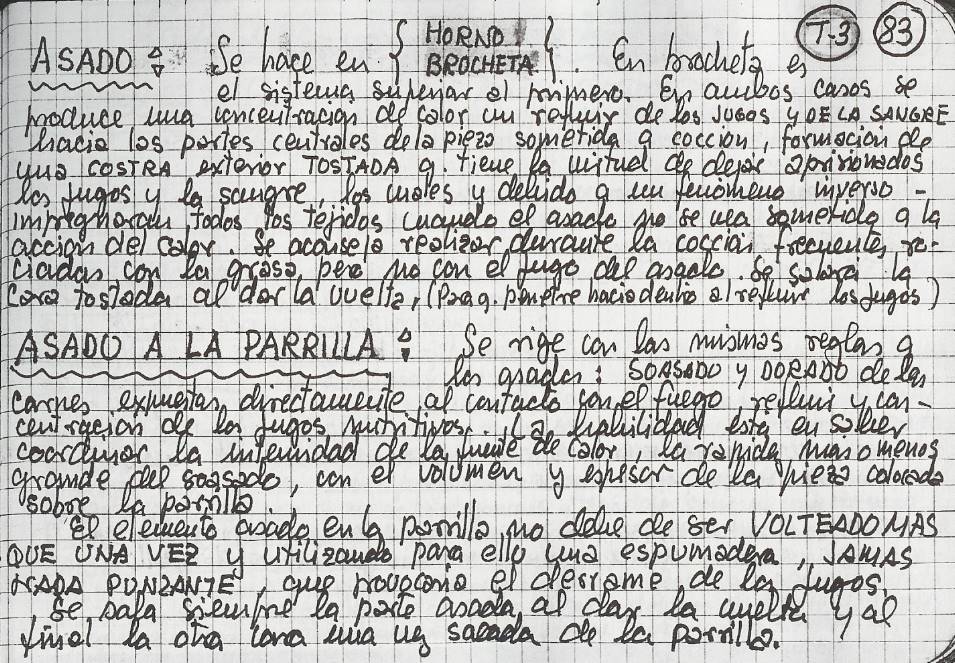 T-3 83
ASADO : Se hace en { HORNO BROCHETA } . En brocheta es
el sistema superior al primero. En ambos casos se
produce una concentración de calor un refluir de los JUGOS Y DE LA SANGRE
hacia las partes centrales de la pieza sometida a cocción, formación de
una COSTRA exterior TOSTADA q. tiene la virtud de dejar aprisionados
los jugos y la sangre, los cuales y debido a un fenómeno inverso -
impregnaran todos los tejidos cuando el asado no se vea sometido a la
acción del calor. Se aconseja realizar durante la cocción frecuentes ro-
ciadas con la grasa, pero no con el jugo del asado. Se salará la
cara tostada al dar la vuelta, (Para q. penetre hacia dentro al refluir los jugos)
ASADO A LA PARRILLA : Se rige con las mismas reglas q
los asados : SOASADO Y DORADO de las
carnes expuestas directamente al contacto con el fuego refluir y con-
centración de los jugos nutritivos. La habilidad está en saber
coordinar la intensidad de la fuente de calor, la rapidez mas o menos
grande del soasado, con el volumen y espesor de la pieza colocada
sobre la parrilla
El elemento asado en la parrilla, no debe de ser VOLTEADO MAS
QUE UNA VEZ y utilizando para ello una espumadera, JAMAS
NADA PUNZANTE, que provocaria el derrame de los jugos.
Se sala siempre la parte asada, al dar la vuelta y al
final la otra cara una vez sacada de la parrilla.